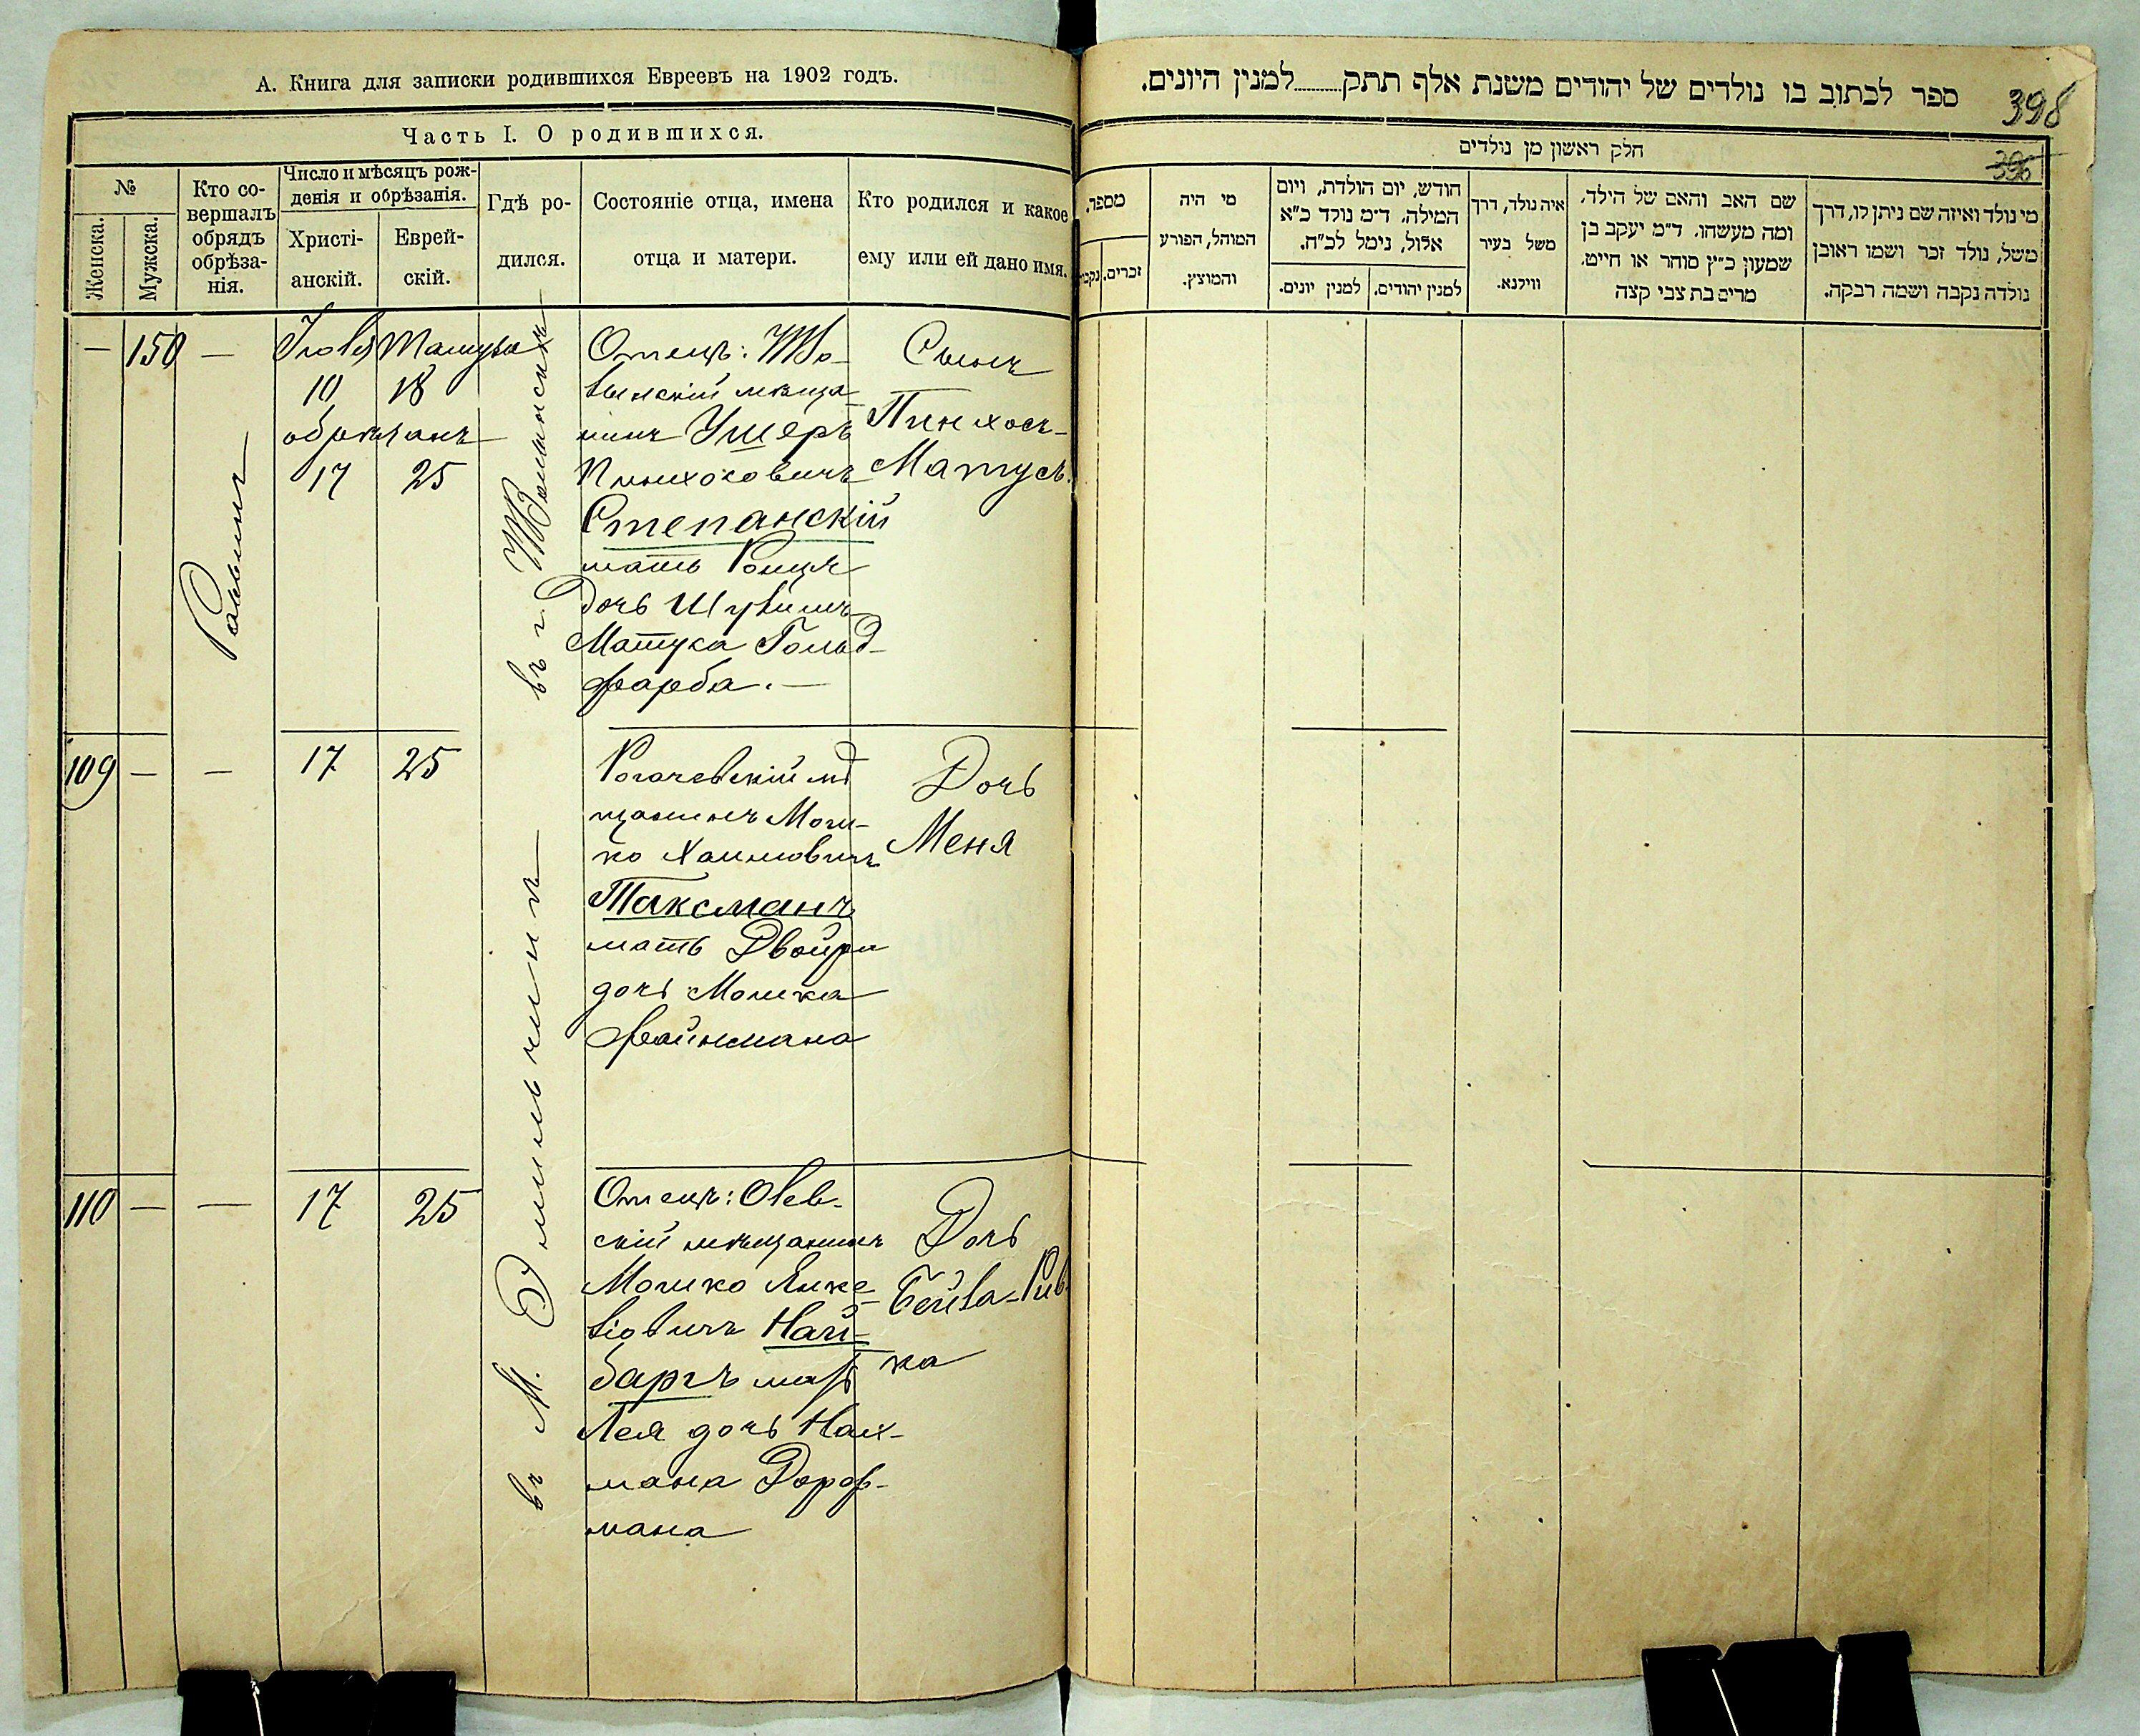 А. Книга для записки родившихся Евреевъ на 1902 годъ.
Часть I. О родившихся.
№
Женска.
Мужска.
Кто со-
вершалъ
обрядъ
обрѣза-
нія.
Число и мѣсяцъ рож-
денія и обрѣзанія.
Христі-
анскій.
Еврей-
скій.
Гдѣ ро-
дился.
Состояніе отца, имена
отца и матери.
Кто родился и какое
ему или ей дано имя.
— 150 —
Раввинъ
Іюля Тамуза
10 18
обрѣзанъ
17 25
въ г.
Отецъ:
мѣща-
нинъ Ушеръ
Пинхосовичъ
Степанскій
мать
дочь
Матуса Гольд-
фарба.—
Сынъ
Пинхосъ-
Матусъ.
109 — —
17 25
въ М. Эмильчинѣ
Рогачевскій мѣ
щанинъ Мош-
ко Хаимовичъ
Таксманъ
мать Двойра
дочь Мошка
Файнмана
Дочь
Меня
110 — —
17 25
Отецъ: Олев-
скій мѣщанинъ
Мошко Янке-
леовичъ Най-
баргъ мать
Лея дочь Нах-
мана Дорф-
мана
Дочь
Бейла-Рив-
ка
ספר לכתוב בו נולדים של יהודים משנת אלף תתק........למנין היונים.
398
396
חלק ראשון מן נולדים
מספר.
זכרים.
נקבות
מי היה
המוהל, הפורע
והמוצץ.
חודש, יום הולדת, ויום
המילה. ד״מ נולד כ״א
אלול, נימל לכ״ח.
למנין יהודים.
למנין יונים.
איה נולד, דרך
משל בעיר
ווילנא.
שם האב והאם של הילד,
ומה מעשהו. ד״מ יעקב בן
שמעון כ״ץ סוהר או חייט.
מרים בת צבי קצה
מי נולד ואיזה שם ניתן לו, דרך
משל, נולד זכר ושמו ראובן
נולדה נקבה ושמה רבקה.